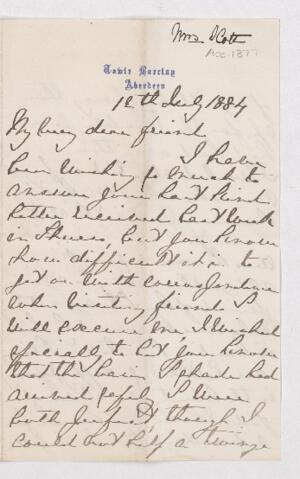 Mrs Scott
Acc. 1377
Towie Barclay
Aberdeen
12th July 1884
My very dear friend
I have
been wishing so much to
answer your last kind
letter received last week
in , but you know
how difficult it is to
get on with correspondence
when visiting friends &
will excuse me, I wished
specially to let you know
that the & had
arrived safely, & were
both perfect, though I
could not help a twinge